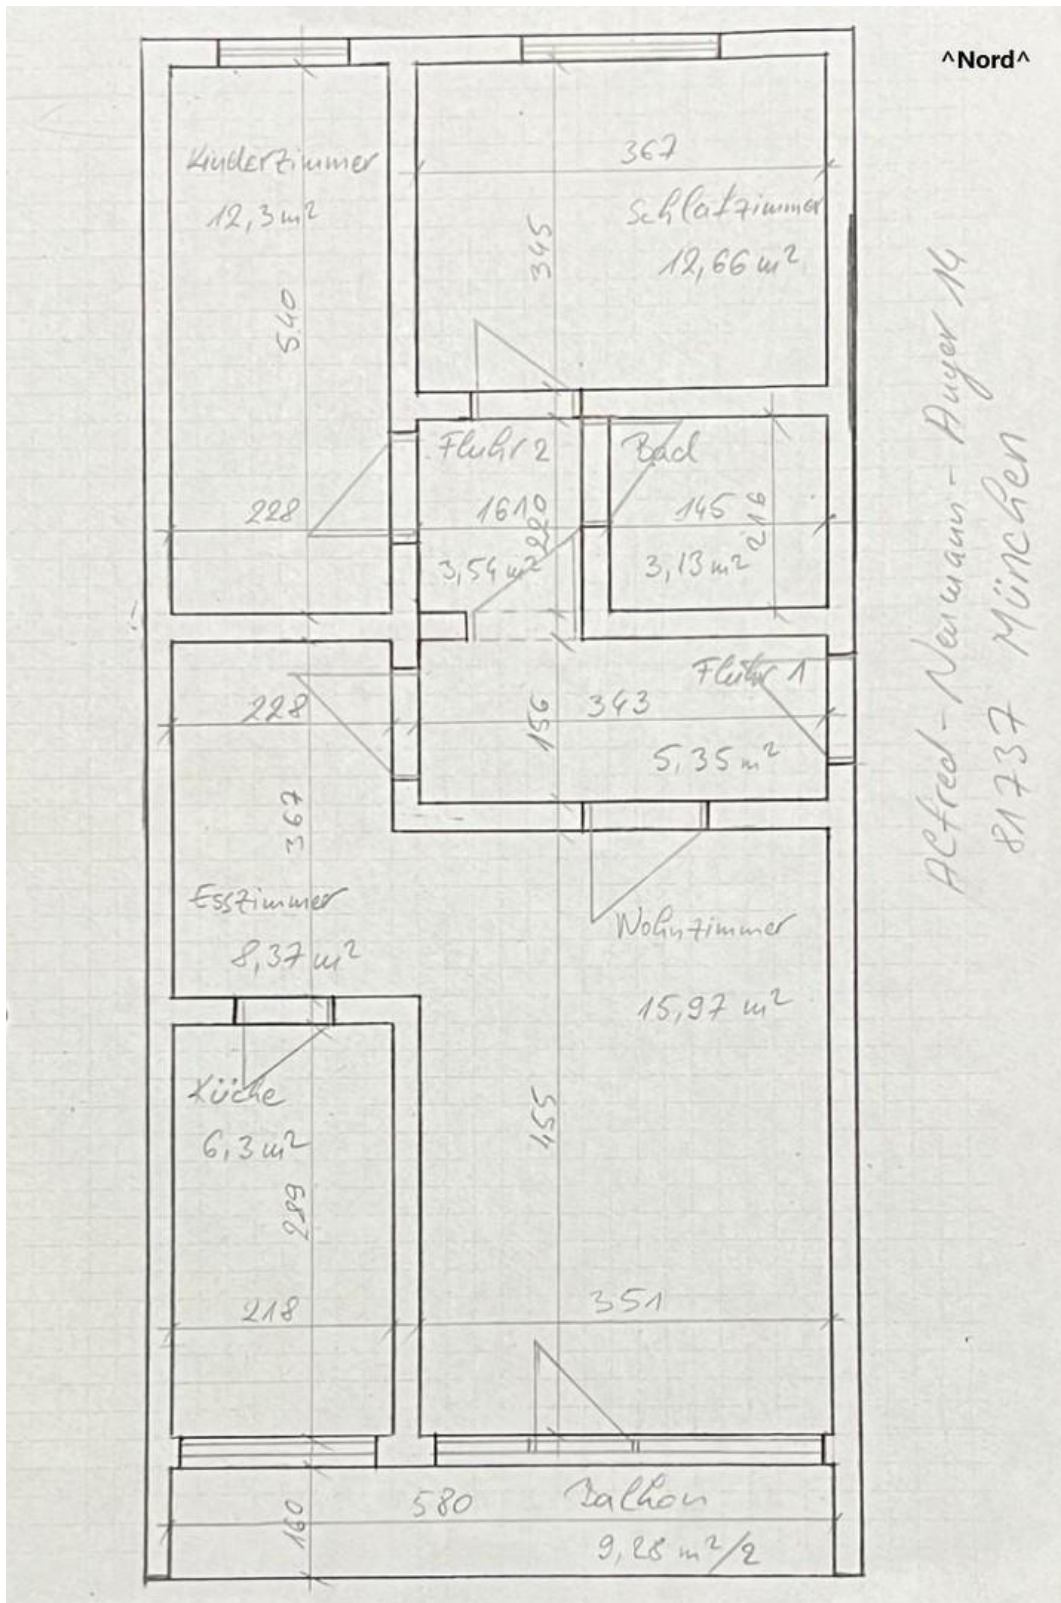 ^Nord^
Kinderzimmer
12,3 m²
540
228
367
Schlafzimmer
345
12,66 m²
Fluhr 2
1610
220
3,54 m²
Bad
145
216
3,13 m²
Fluhr 1
343
156
5,35 m²
228
367
Esszimmer
8,37 m²
Wohnzimmer
15,97 m²
455
351
Küche
6,3 m²
289
218
580
Balkon
160
9,28 m²/2
Alfred-Neumann-Anger 14
81737 München